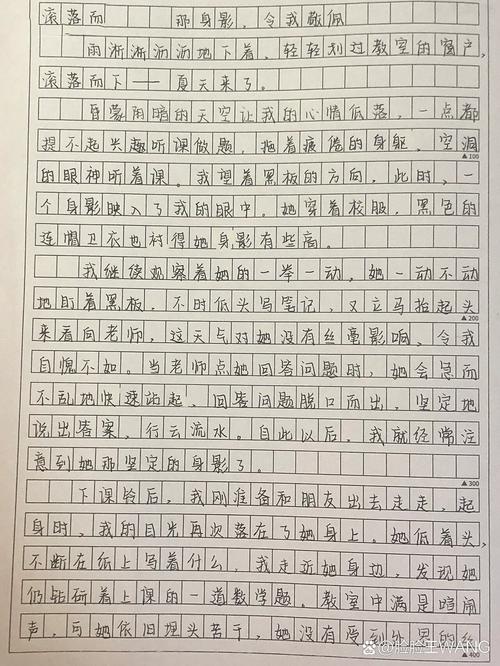 滚落而　　那身影，令我敬佩
雨淅淅沥沥地下着，轻轻划过教室的窗户，
滚落而下——夏天来了。
昏蒙阴暗的天空让我的心情低落，一点都
提不起兴趣听课做题，拖着疲倦的身躯，空洞
▲100
的眼神听着课。我望着黑板的方向，此时，一
个身影映入了我的眼中。她穿着校服，黑色的
连帽卫衣也衬得她身影有些高。
我继续观察着她的一举一动，她一动不动
地盯着黑板，不时低头写笔记，又立马抬起头
▲200
来看向老师，这天气对她没有丝毫影响，令我
自愧不如。当老师点她回答问题时，她会急而
不乱地快速站起，回答问题脱口而出，坚定地
说出答案，行云流水。自此以后，我就经常注
意到她那坚定的身影了。
▲300
下课铃后，我刚准备和朋友出去走走，起
身时，我的目光再次落在了她身上。她低着头，
不断在纸上写着什么，我走近她身边，发现她
仍钻研着上课的一道数学题。教室中满是喧闹
声，可她依旧埋头苦干，她没有受到外界的丝
▲400
@脸脸王WANG